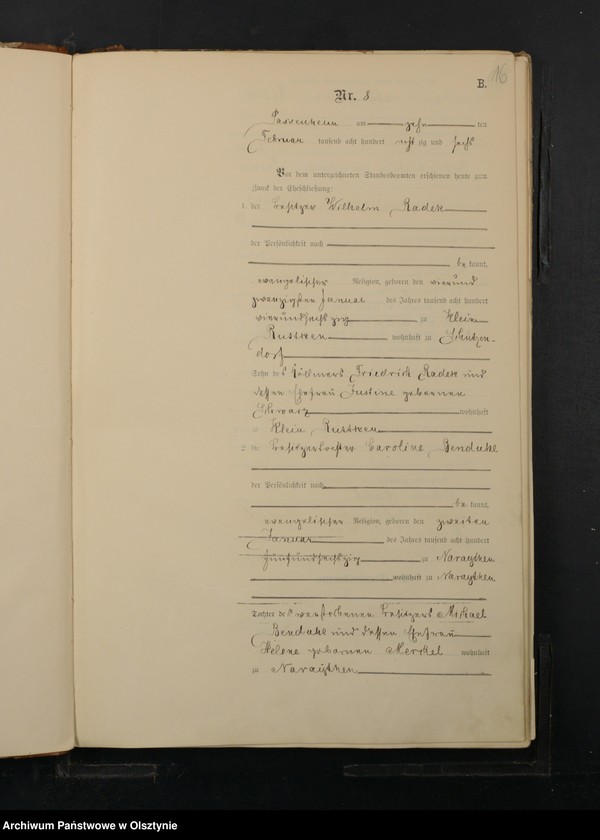 16
B.
Nr. 8
Passenheim am zehn ten
Februar tausend acht hundert acht zig und sechs
Vor dem unterzeichneten Standesbeamten erschienen heute zum
Zweck der Eheschließung:
1. der Besitzer Wilhelm Radek
der Persönlichkeit nach
be kannt,
evangelischer Religion, geboren den vierund
zwanzigsten Januar des Jahres tausend acht hundert
vierundsechszig zu Klein
Rutken wohnhaft zu Schützen-
dorf
Sohn des Köllmers Friedrich Radek und
dessen Ehefrau Justine geborenen
Schwarz wohnhaft
zu Klein Rutken
2. die Besitzertochter Caroline Benduhl
der Persönlichkeit nach
be kannt,
evangelischer Religion, geboren den zweiten
Januar des Jahres tausend acht hundert
fünfundsechszig zu Naraythen
wohnhaft zu Naraythen
Tochter des verstorbenen Besitzers Michael
Benduhl und dessen Ehefrau
Helene geborenen Merkel wohnhaft
zu Naraythen
Archiwum Państwowe w Olsztynie